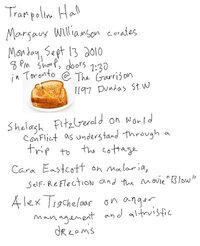 Trampoline Hall
Margaux Williamson curates
Monday, Sept 13 2010
8 PM sharp, doors 7:30
in Toronto @ The Garrison
1197 Dundas St W
Shelagh Fitzgerald on World
Conflict as understood through a
trip to the cottage
Cara Eastcott on malaria,
self-reflection and the movie "Blow"
Alex Tigchelaar on anger
management and altruistic
dreams